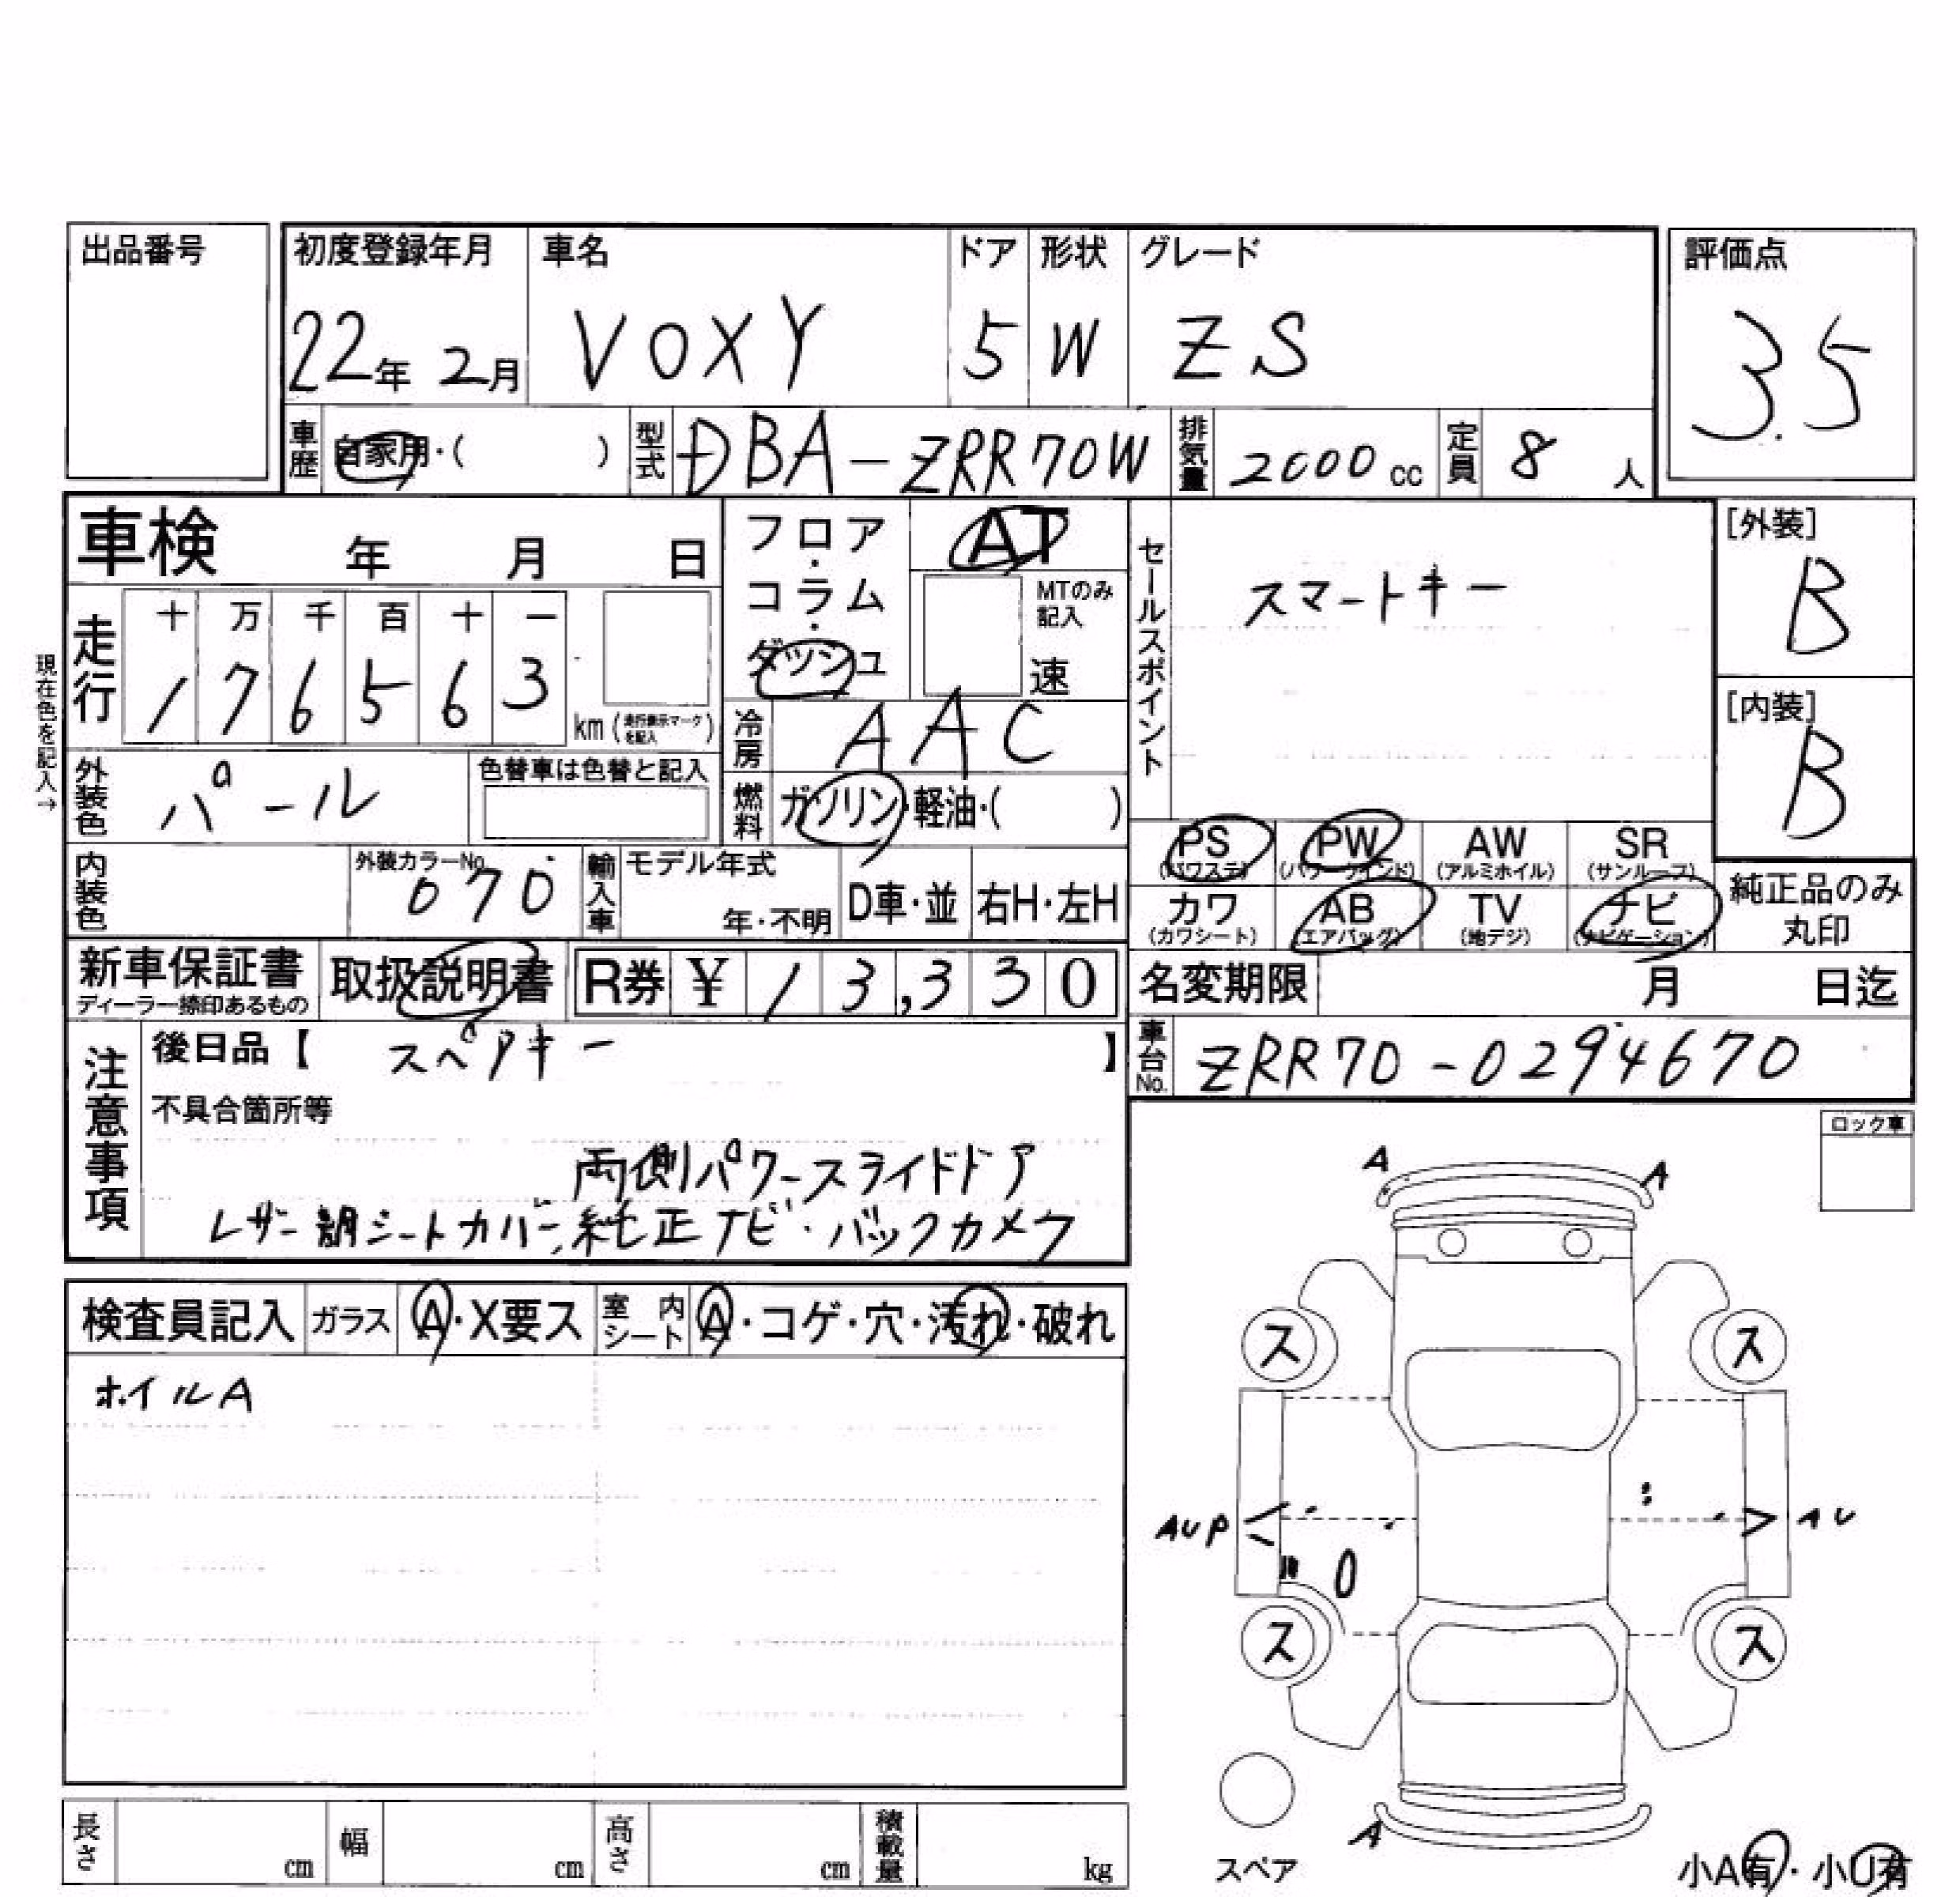 出品番号
初度登録年月 車名 ドア 形状 グレード 評価点
22年 2月 VOXY 5 W ZS 3.5
車歴 自家用・( ) 型式 DBA-ZRR70W 排気量 2000 cc 定員 8 人
車検 年 月 日
フロア・コラム・ダッシュ
AT
MTのみ記入
速
セールスポイント
スマートキー
[外装]
B
[内装]
B
現在色を記入→
走行
十 万 千 百 十 一
1 7 6 5 6 3
km (走行表示マークを記入)
冷房 AAC
外装色 パール
色替車は色替と記入
燃料 ガソリン・軽油・( )
PS (パワステ) PW (パワーウインド) AW (アルミホイル) SR (サンルーフ)
カワ (カワシート) AB (エアバッグ) TV (地デジ) ナビ (ナビゲーション)
純正品のみ丸印
内装色
外装カラーNo. 070
輸入車 モデル年式 年・不明 D車・並 右H・左H
新車保証書
ディーラー捺印あるもの
取扱説明書
R券 ¥ 13,330
名変期限 月 日迄
車台No. ZRR70-0294670
注意事項
後日品【 スペアキー 】
不具合箇所等
両側パワースライドドア
レザー調シートカバー、純正ナビ・バックカメラ
ロック車
検査員記入 ガラス A・X要ス 室内シート A・コゲ・穴・汚れ・破れ
ホイルA
A A
ス ス
AUP AU
ス ス
A
スペア
小A有・小U有
長さ cm 幅 cm 高さ cm 積載量 kg